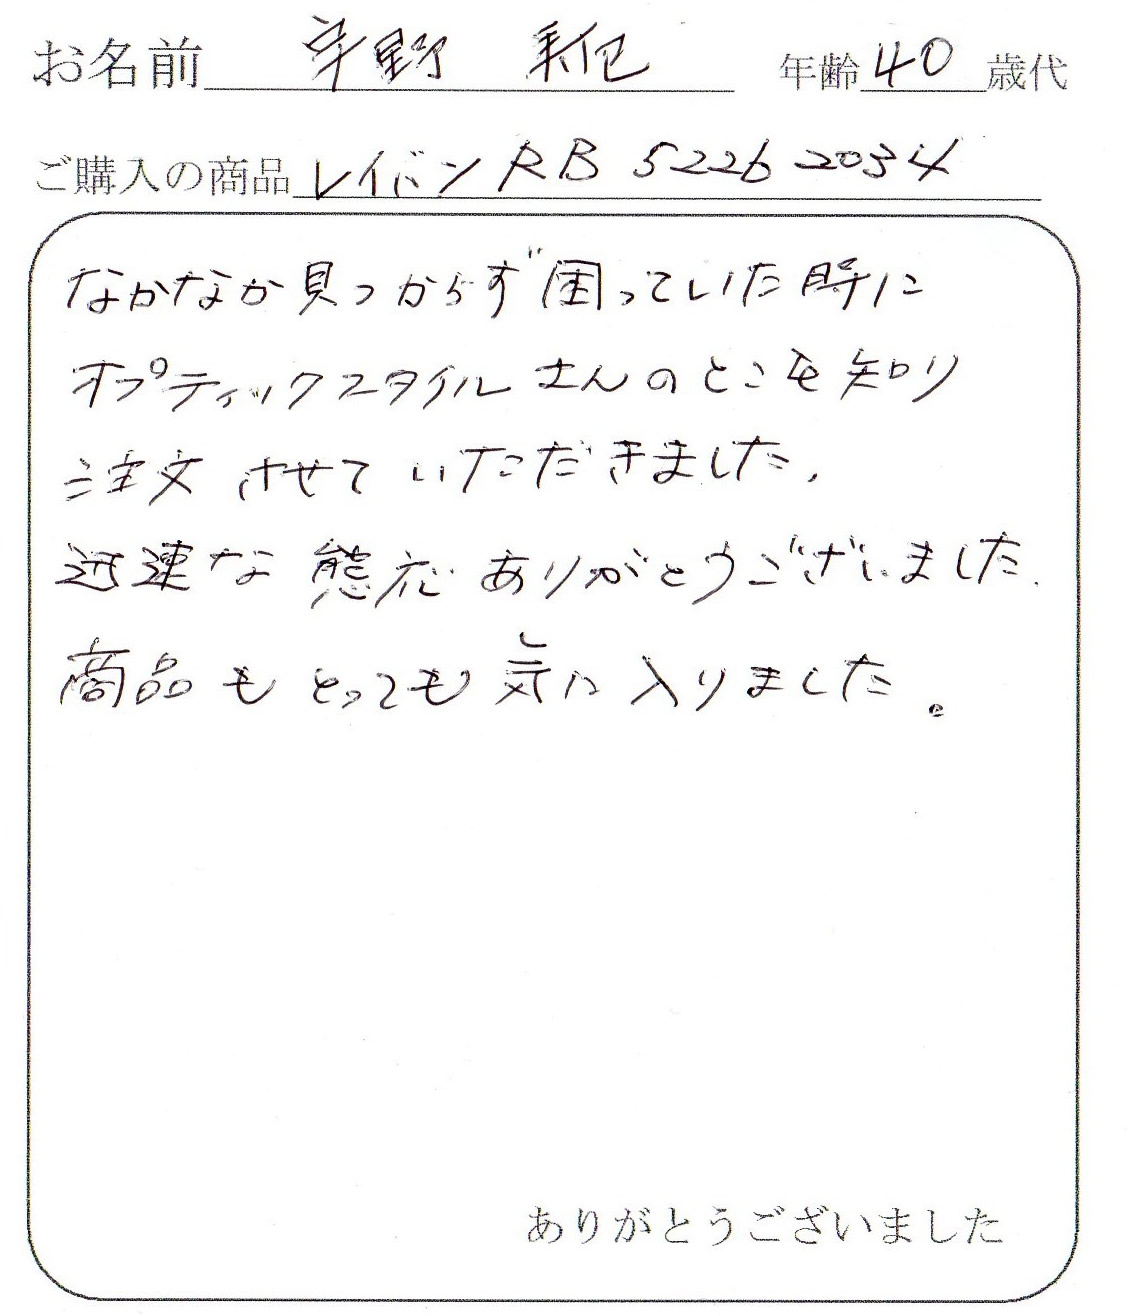 お名前 野 年齢 40 歳代
ご購入の商品 レイバン RB 5226 2034
なかなか見つからず困っていた時に
オプティックスタイルさんのとこを知り
注文させていただきました.
迅速な態応ありがとうございました.
商品もとっても気に入りました。
ありがとうございました